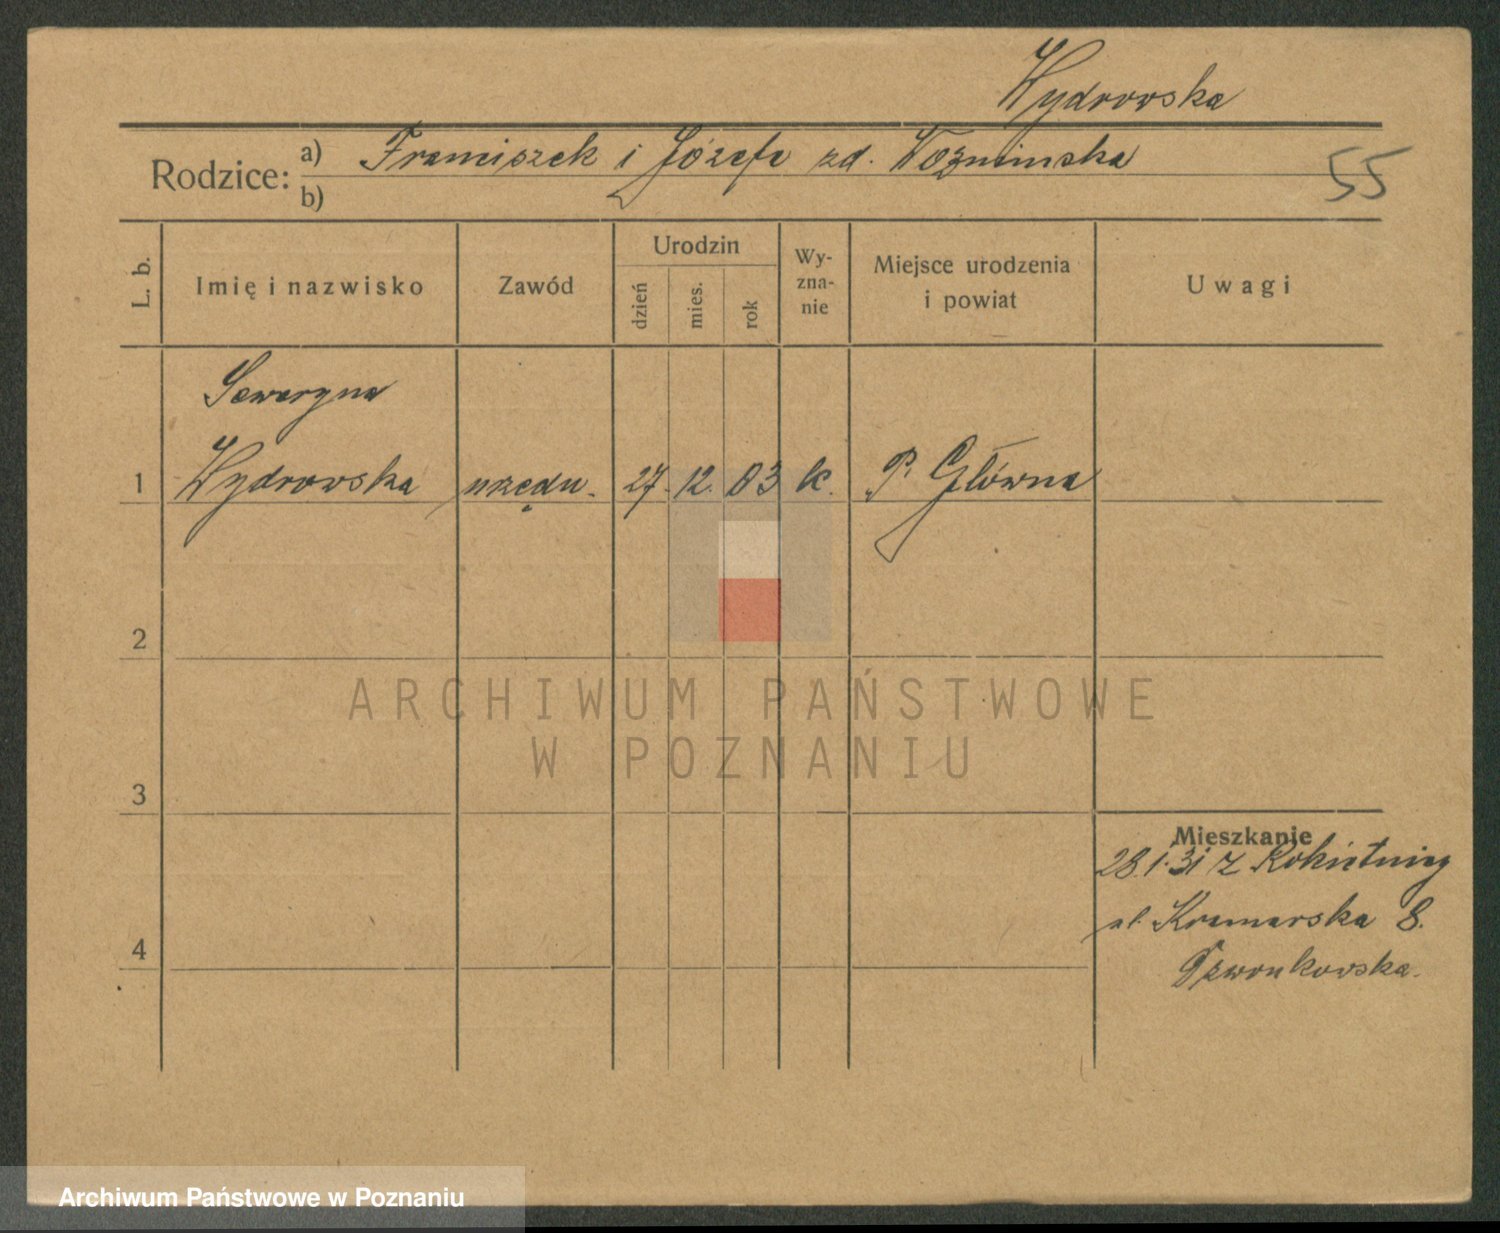 Wydrowska
Rodzice:
a) Franciszek i Józefa zd. Woźnińska
b)
55
L. b.
Imię i nazwisko
Zawód
Urodzin
dzień
mies.
rok
Wy-
zna-
nie
Miejsce urodzenia
i powiat
Uwagi
Seweryna
1 Wydrowska urzędn. 27. 12. 03 k. P. Główna
2
3
4
Mieszkanie
28.1.31 z Rokietnicy
ul. Kramarska 8.
Dzwonkowska.
ARCHIWUM PAŃSTWOWE
W POZNANIU
Archiwum Państwowe w Poznaniu